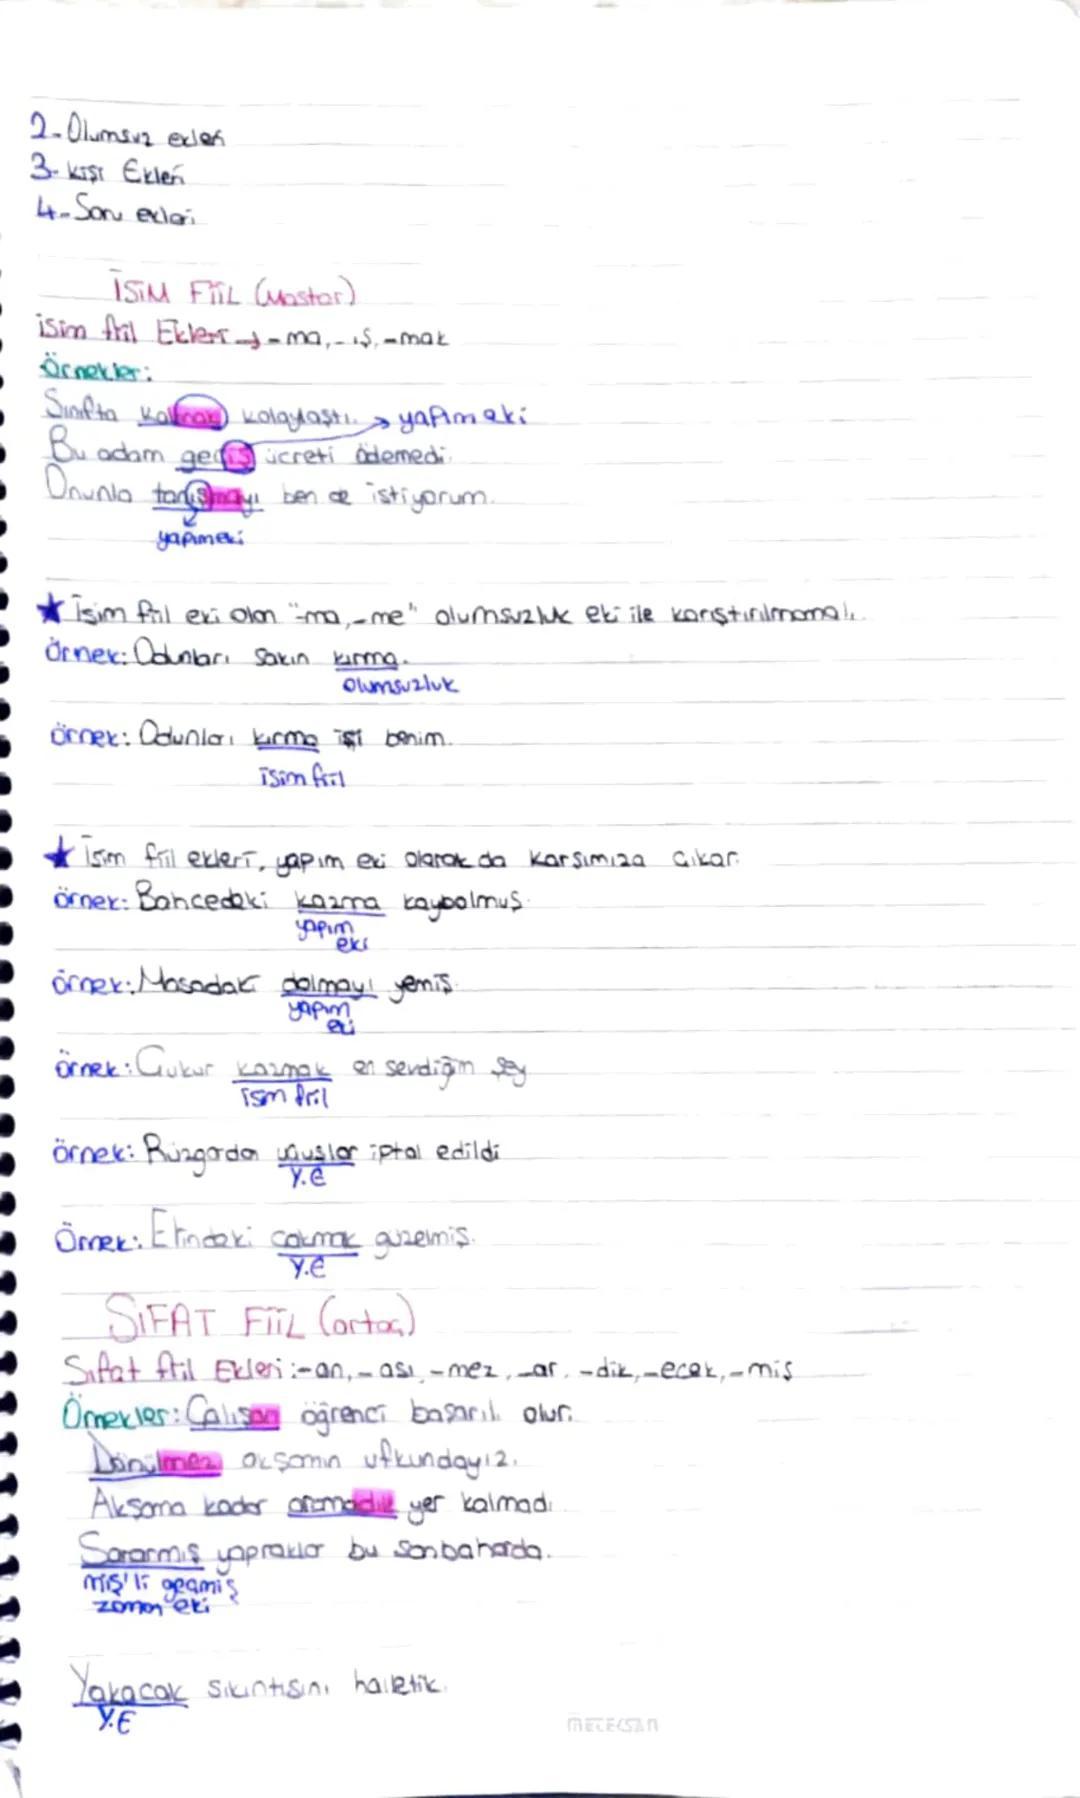 2-Olumsuz ekleri
3-kişi Ekleri
4-Soru ekleri
İSİM FİİL (Mastar)
isim fiil Ekleri → -ma, -ış, -mak
Örnekler:
Sınıfta kalmak kolaylaştı. → yapım eki
Bu adam geçiş ücreti ödemedi.
Onunla tanışmayı ben de istiyorum.
yapım eki
★ İsim fiil eki olan "-ma, -me" olumsuzluk eki ile karıştırılmamalı.
Örnek: Odunları sakın kırma.
olumsuzluk
örnek: Odunları kırma işi benim.
isim fiil
★ İsim fiil ekleri, yapım eki olarak da karşımıza çıkar.
örnek: Bahcedeki kazma kaybolmuş.
yapım
eki
örnek: Masadaki dolmayı yemiş.
yapım
eki
örnek: Çukur kazmak en sevdiğim şey
isim fiil
örnek: Rüzgardan uçuşlar iptal edildi
Y.E
Örnek: Elindeki çakmak güzelmiş.
Y.E
SIFAT FİİL (ortaç)
Sıfat fiil Ekleri: -an, -ası, -mez, -ar, -dik, -ecek, -miş
Örnekler: Çalışan öğrenci başarılı olur.
Dönülmez akşamın ufkundayız.
Akşama kadar aramadık yer kalmadı
Sararmış yapraklar bu sonbaharda.
miş'li geçmiş
zaman eki
Yakacak sıkıntısını hallettik.
Y.E
MECEKSAN